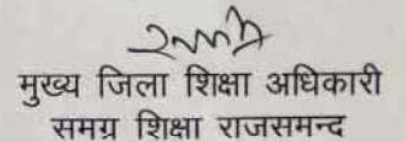 मुख्य जिला शिक्षा अधिकारी
समग्र शिक्षा राजसमन्द